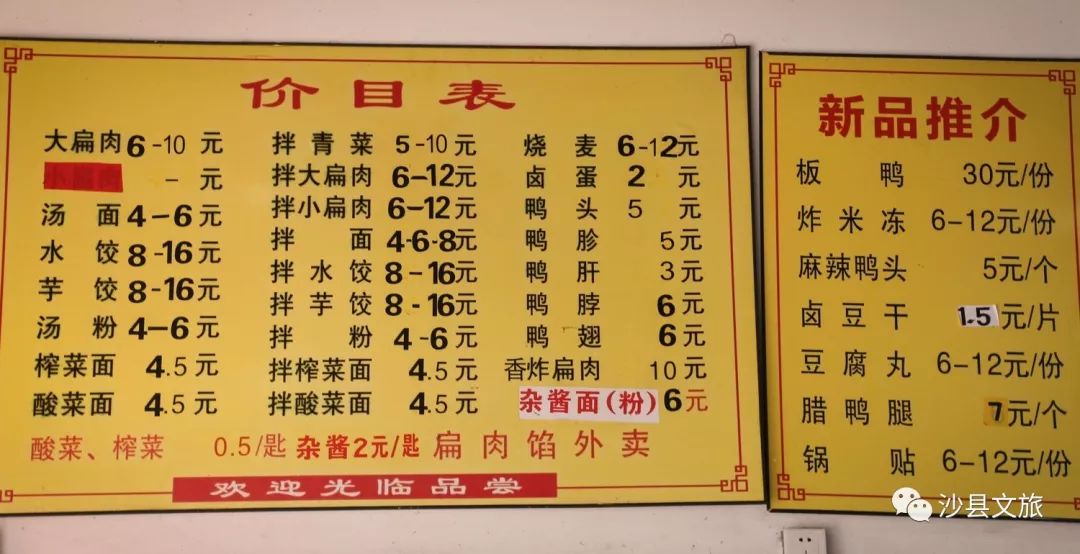 价目表
大扁肉 6-10 元
拌青菜 5-10元
烧麦 6-12元
小扁肉 - 元
拌大扁肉 6-12元
卤蛋 2 元
汤面 4-6元
拌小扁肉 6-12元
鸭头 5 元
水饺 8-16元
拌面 4-6-8元
鸭胗 5元
芋饺 8-16元
拌水饺 8-16元
鸭肝 3元
汤粉 4-6元
拌芋饺 8-16元
鸭脖 6元
榨菜面 4.5元
拌粉 4-6元
鸭翅 6元
酸菜面 4.5元
拌榨菜面 4.5元
香炸扁肉 10元
拌酸菜面 4.5元
杂酱面(粉) 6元
酸菜、榨菜 0.5/匙 杂酱2元/匙 扁肉馅外卖
欢迎光临品尝
新品推介
板鸭 30元/份
炸米冻 6-12元/份
麻辣鸭头 5元/个
卤豆干 1.5元/片
豆腐丸 6-12元/份
腊鸭腿 7元/个
锅贴 6-12元/份
沙县文旅